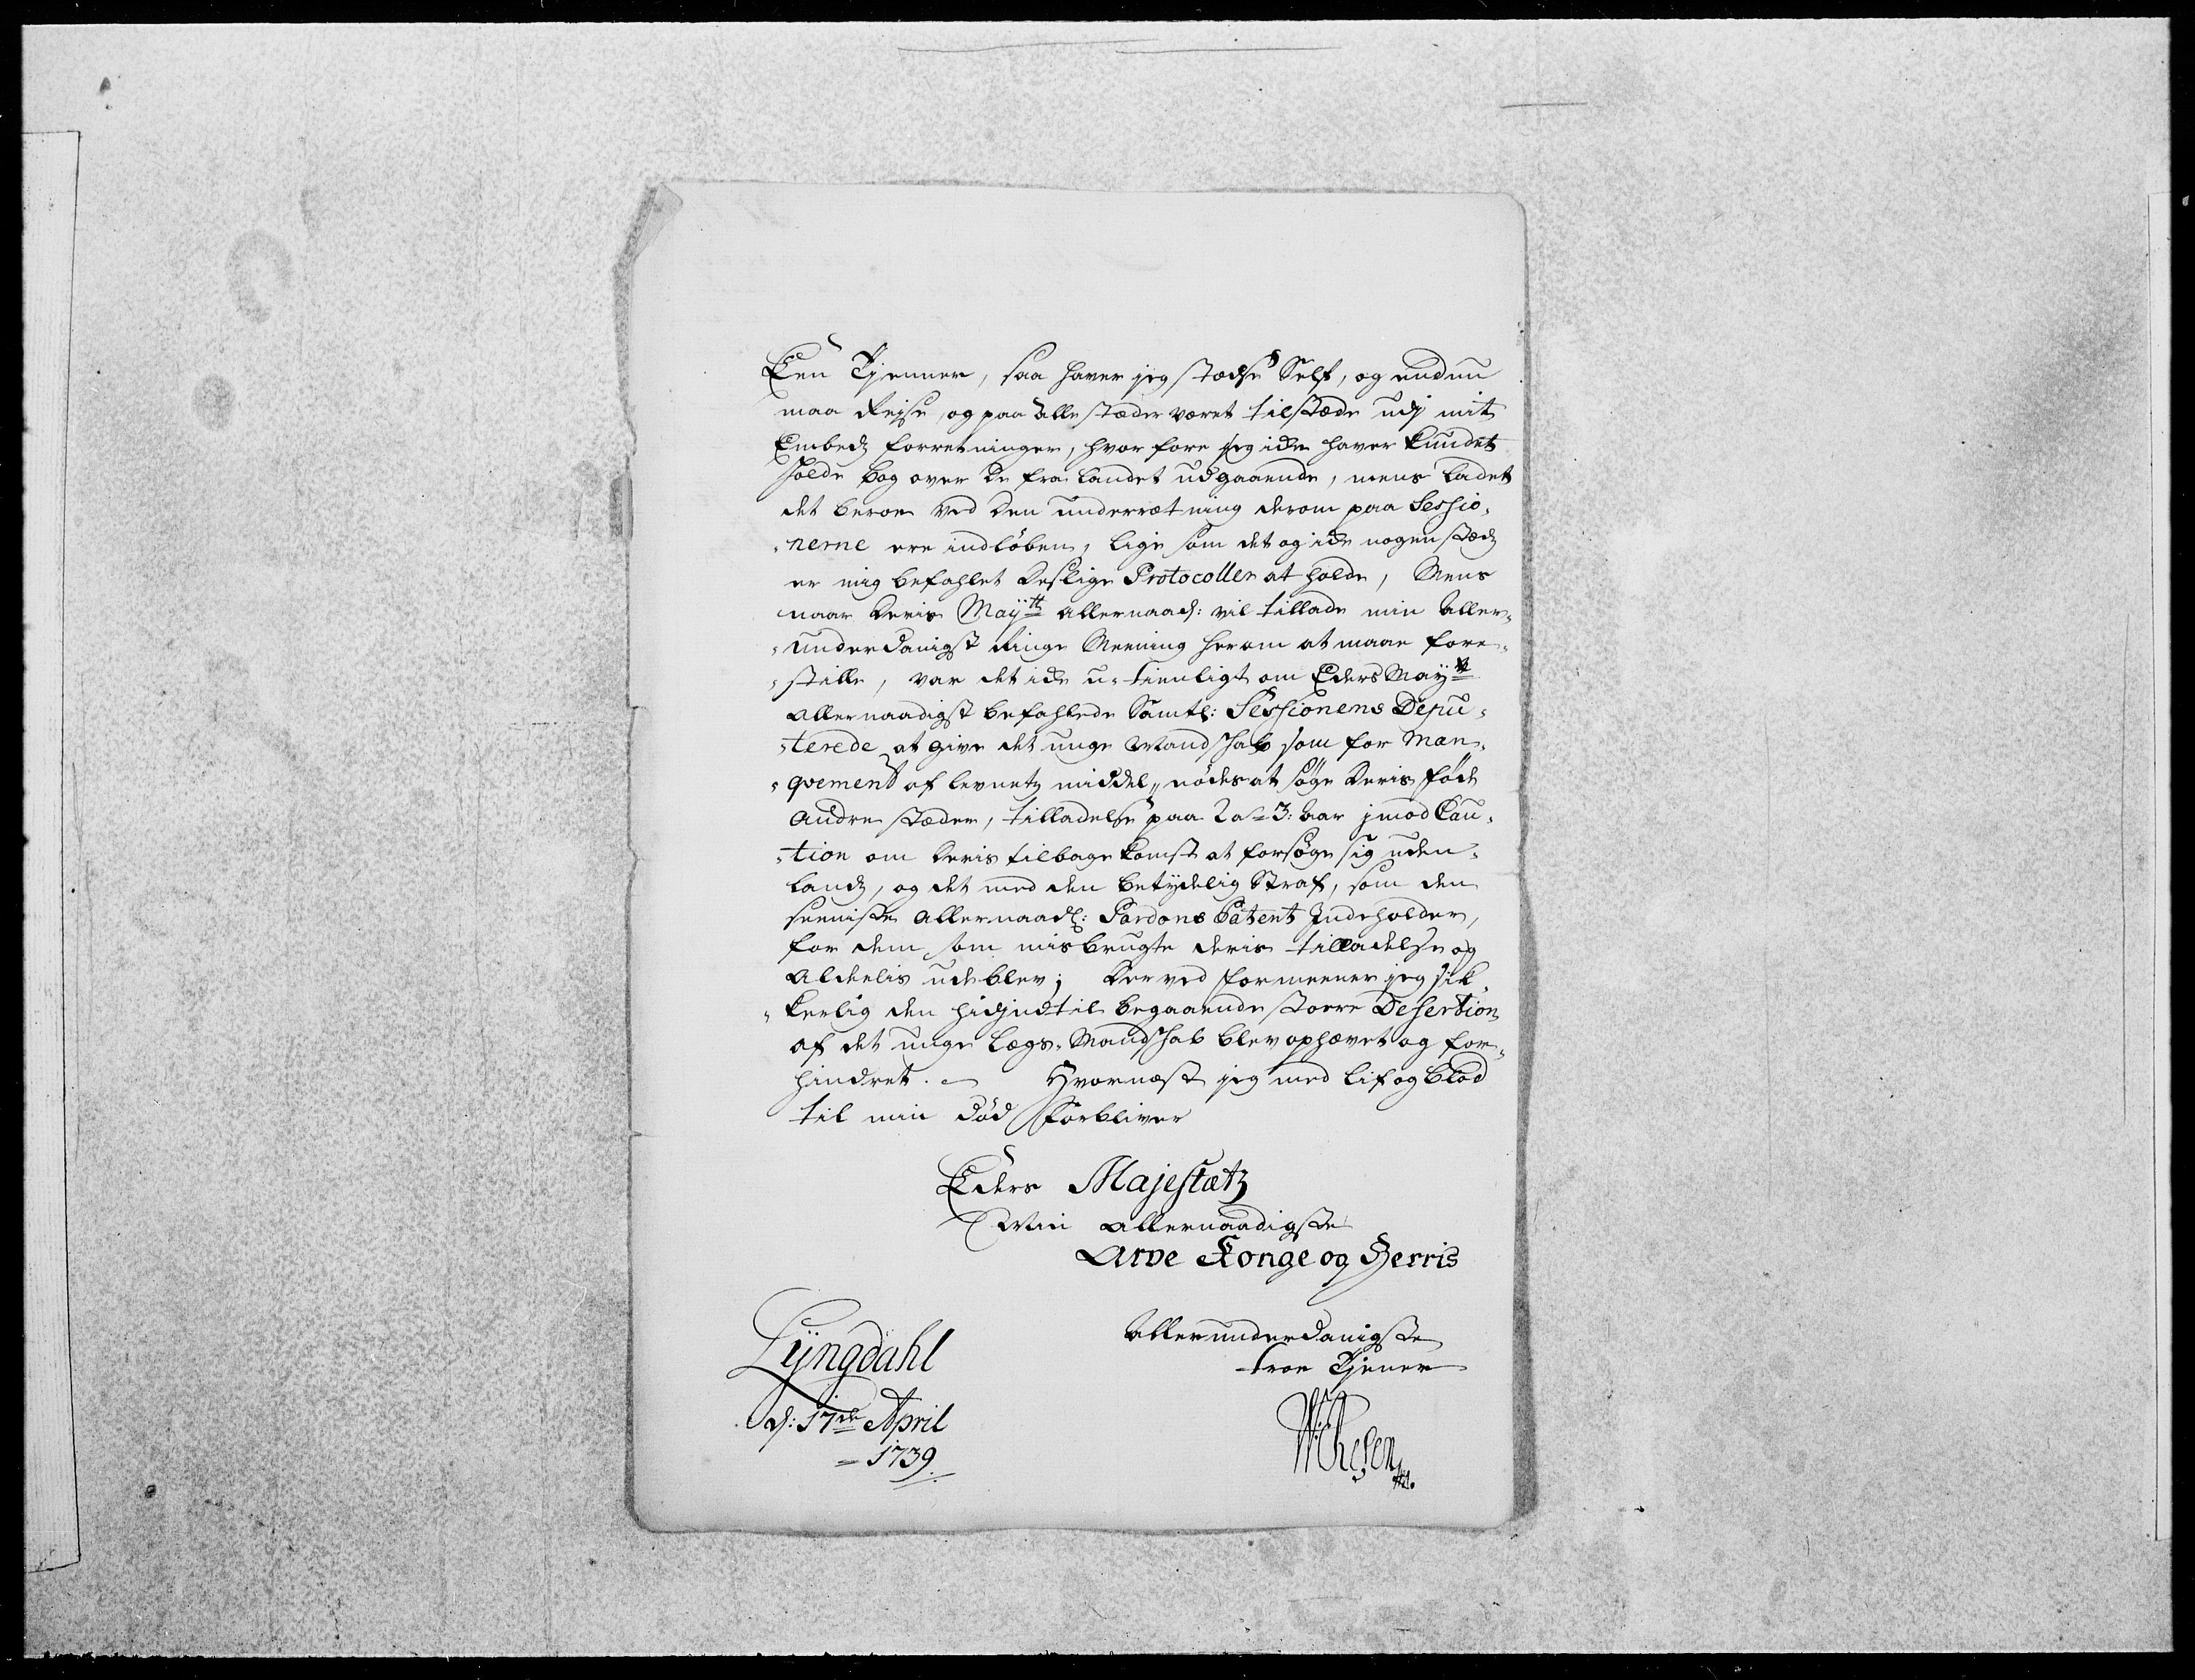 Een Tjenner, saa haver jeg stædse Self, og endnu
maa Rejse, og paa alle stæder været tilstæde udj mit
Embedz forretninger, hvor fore jeg icke haver kundet
holde bog over De fra Landet udgaaende, mens ladet
det beroe ved den underrætning derom paa Sessio-
-nerne ere indløben, lige som det og icke nogenstædz
er mig befahlet Deslige Protocoller at holde, Mens
naar Deris Mayttz allernaad: vil tillade min aller-
-underdanigst Ringe Meening herom at maae fore-
-stille, var det icke u-tienligt om Eders Maytt
allernaadigst befahlede Samtl: Sessionens Depu-
-terede at give det unge Mandschab som for Man-
-qvement af levnetz middel, nødes at søge Deris føde
andre stæder, tilladelse paa 2 a 3: aar jmod Cau-
-tion om Deris tilbagekomst at forsøge sig uden-
landz, og det med den betydelig Straf, som den
seeniste allernaadl: Pardons Patent Indeholder,
for dem som misbrugte deris tilladelse og
aldeelis udeblev; Derved formeener jeg sik-
-kerlig den hidindtil begaaende stoere Desertion
af det unge Lægs-Mandschab blev ophævet og for-
hindret. Hvornæst jeg med lif og blod
til min død forbliver
Eders Majestætz
Min allernaadigste
Arve Konge og Herris
Allerunderdanigste
troe Tjener
Lyngdahl
d: 17de April
1739